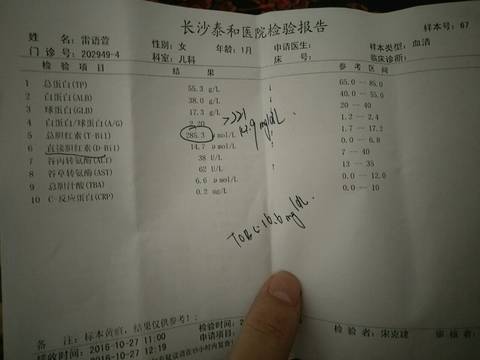 长沙泰和医院检验报告
样本号: 67
姓 名: 雷语萱 性别: 女 年龄: 1月 申请医生: 样本类型: 血清
门 诊 号: 202949-4 科室: 儿科 床 号: 临床诊断:
检 验 项 目 结 果 参 考 区 间
1 总蛋白(TP) 55.3 g/L ↓ 65.0 — 85.0
2 白蛋白(ALB) 38.0 g/L ↓ 40.0 — 55.0
3 球蛋白(GLB) 17.3 g/L ↓ 20 — 40
4 白蛋白/球蛋白(A/G) 2.20 1.2 — 2.4
5 总胆红素(T-Bil) 285.3 μmol/L 1.7 — 17.2
6 直接胆红素(D-Bil) 14.7 μmol/L 0.0 — 6.8
7 谷丙转氨酶(ALT) 38 U/L 7 — 40
8 谷草转氨酶(AST) 62 U/L ↑ 13 — 35
9 总胆汁酸(TBA) 6.6 μmol/L 0.0 — 12.0
10 C-反应蛋白(CRP) 0.2 mg/L 0.0 — 10
mg/dL
16.6 mg/dL.
备 注: 标本黄疸, 结果仅供参考!
2016-10-27 11:00 检验时间: 检验者: 宋克建
接收时间: 2016-10-27 12:19 申请项目: